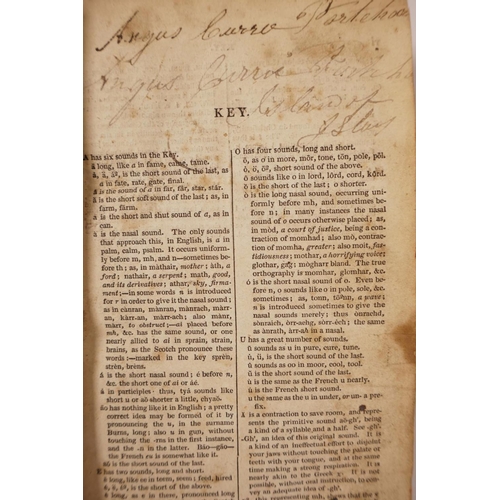 Angus Currie Portcharl
Angus Currie Portch
Island of
Islay
KEY.
A has six sounds in the Key.
ā long, like a in fame, came, tame.
short sound of the last, as
a in fate, rate, gate, final.
is the sound of a in far, får, star, stár.
is the short soft sound of the last; as, in
farm, färm.
is the short and shut sound of a, as in
can.
is a nasal sound. The only sounds
that approach this, in English, is a in
palm, calm, psalm. It occurs uniform-
ly before m, mh, and n—sometimes be-
fore th; as, in màthair, mother; àth, a
ford; nathair, a serpent; math, good,
and its derivatives; athar, sky, firma-
ment;—in some words n is introduced
for r in order to give it the nasal sound;
as in cànran, mànran, màntach, màrr-
an, kàrr-an, màrr-ach; also mànr,
màrr, to obstruct;—ai placed before
mh, &c. has the same sound, or one
nearly allied to ai in sprain, strain,
brains, as the Scotch pronounce these
words;—marked in the key sprèn,
strèn, brèns.
is the short nasal sound; é before n,
&c. the short one of ai or áé.
in participles- thus, tyá sounds like
short u or aŏ shorter a little, chyaŏ.
ao has nothing like it in English; a pretty
correct idea may be formed of it by
pronouncing the u, in the surname
Burns, long; also u in gun, without
touching the -rns in the first instance,
and the -n in the other. Bāo-gāo—
the French eu is somewhat like it.
is the short sound of the last.
E has two sounds, long and short.
ē long, like ee in teem, seem; feed, hired
as e long; as in these, pronounced long
O has four sounds, long and short.
ō, as o in more, mōr, tone, tōn, pole, pōl.
short sound of the above.
ô sounds like o in lord, lôrd, cord, kôrd.
is the short of the last; o shorter.
ò is the long nasal sound, occurring uni-
formly before mh, and sometimes be-
fore n; in many instances the nasal
sound of o occurs otherwise placed; as,
in mòd, a court of justice, being a con-
traction of momhad; also mò, contrac-
tion of momha, greater; also moit, fas-
tidiousness; mothar, a horrifying voice;
glothar, gag; mòghar bland. The true
orthography is momhar, glomhar, &c.
ó is the short nasal sound of o. Even be-
fore n, o sounds like o in pole, sole, &c.
sometimes; as, tonn, a wave;
n is introduced sometimes to give the
nasal sounds merely; thus onrachd,
sònraich, òrr-achg, sòrr-ch; the same
as ànrath, àrr-ah in a nasal.
U has a great number of sounds.
ū sounds as u in pure, cure, tune.
is the short sound of the last.
û sounds as oo in moor, cool, tool.
is the short sound of the last.
is the same as the French u nearly.
is the French short sound.
is the same as the u in under, or un- a pre-
fix.
is a contraction to save room, and repre-
sents the primitive sound aŏ-gh', being
a kind of a syllable and a half. See gh'.
-Gh', an idea of this original sound. It is
a kind of guttural effort to disjoint
your jaws without touching the palate or
teeth with your tongue, and at the same
time making a strong respiration. It is
nearly akin to the Greek χ. If is not
possible, without oral instruction, to con-
vey an adequate idea of gh'.